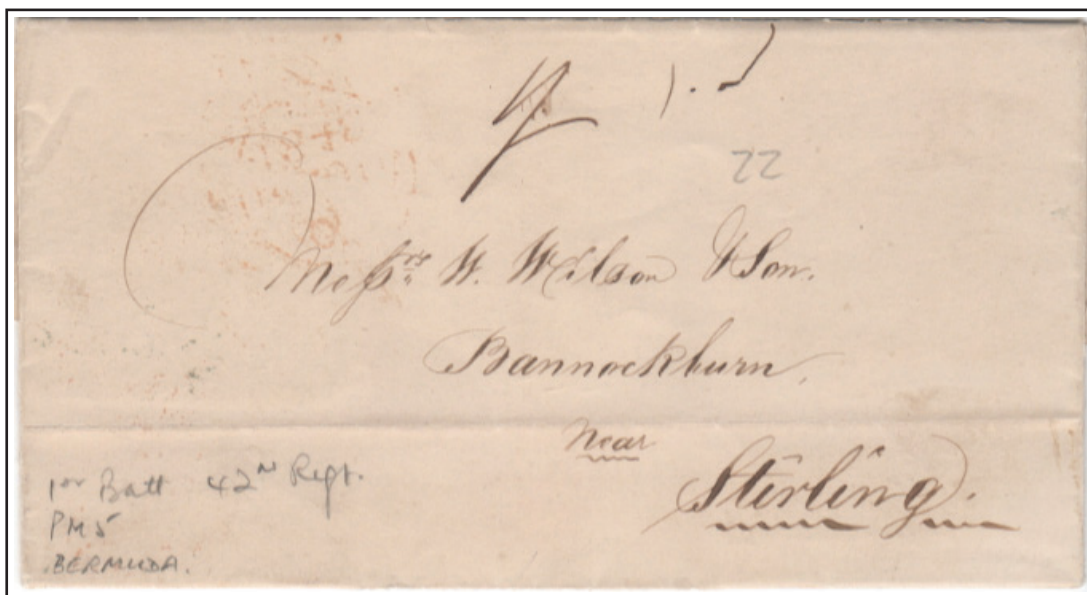 22
Messrs W. Wilson & Son.
Bannockburn.
Near
Stirling.
1st Batt 42nd Regt.
PM5
BERMUDA.